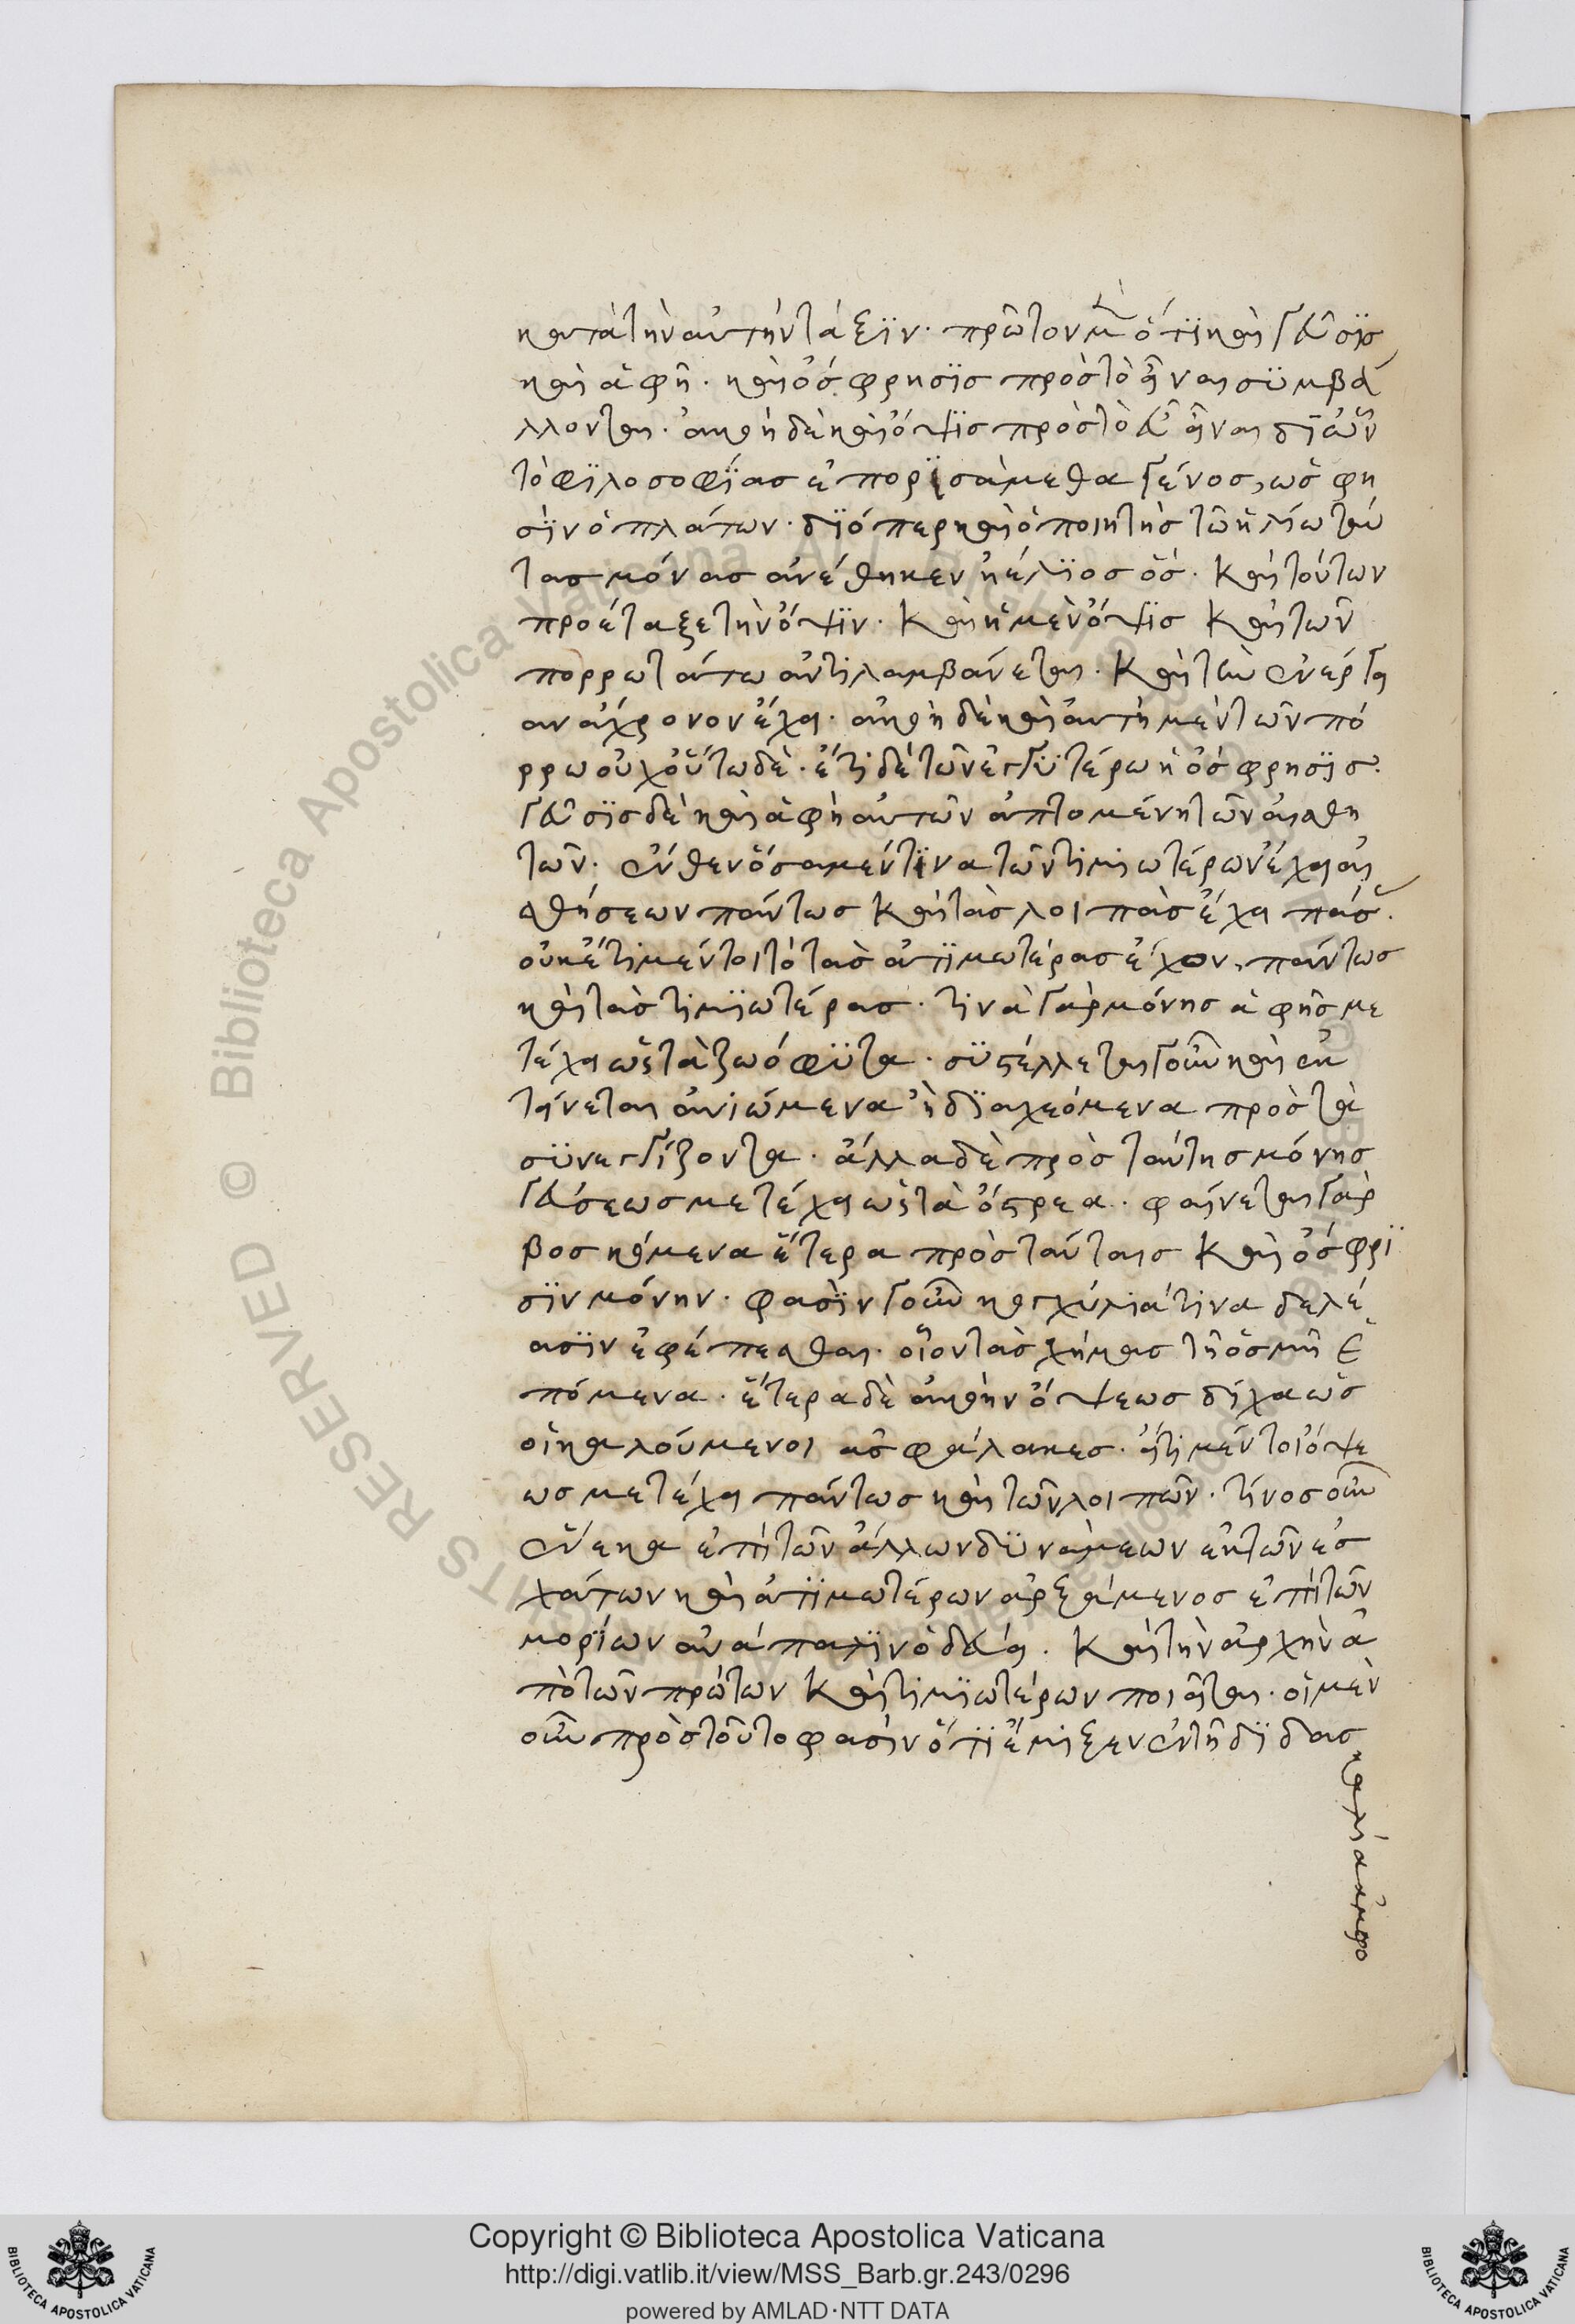 κατὰ τὴν αὐτὴν τάξϊν· πρῶτον μὲν ὅτϊ καὶ γεῦσϊς
καὶ ἁφῆ· καὶ ὄσφρησϊς πρὸς τὸ εἶναι σϋμβά
λλονται· ἀκοὴ δὲ καὶ ὄψϊς πρὸς τὸ εὖ εἶναι δϊ ὧν
τὸ φϊλοσοφΐας ἐπορϊσάμεθα γένος, ὥς φη
σὶν ὁ πλάτων· δϊόπερ καὶ ὁ ποιητὴς τῶ ἡλίω ταύ
τας μόνας ἀνέθηκεν ἠέλϊος ὅς· Καὶ τούτων
προέταξε τὴν ὄψϊν· Καὶ ἡ μὲν ὄψϊς Καὶ τῶν
πορρωτάτω ἀντιλαμβάνεται· Καὶ τὴν ἐνέργει
αν ἄχρονον ἔχει· ἀκοὴ δὲ καὶ αὐτὴ μὲν τῶν πό
ρρω οὐχ οὕτω δὲ· ἔτι δὲ τῶν ἐγγϋτέρω ἡ ὄσφρησϊς·
γεῦσϊς δὲ καὶ ἁφὴ αὐτῶν ἁπτομένη τῶν αἰσθη
τῶν· ἔνθεν ὅσα μέν τϊνα τῶν τιμιωτέρων ἔχει αἰ
σθήσεων πάντως Καὶ τὰς λοιπὰς ἔχει πάσ
οὐκέτι μέντοι τὸ τὰς ἀτϊμωτέρας ἔχον, πάντως
καὶ τὰς τιμϊωτέρας· τινὰ γὰρ μόνης ἁφῆς με
τέχει ὡς τὰ ζωόφϋτα· σϋστέλλεται γοῦν καὶ ἐκ
τείνεται ἀνιώμενα ἢ δϊαχεόμενα πρὸς τὰ
σϋνεγγίζοντα· ἄλλα δὲ πρὸς ταύτης μόνης
γεύσεως μετέχει ὡς τὰ ὄστρεα· φαίνεται γὰρ
βοσκόμενα ἕτερα πρὸς ταύταις Καὶ ὄσφρϊ
σϊν μόνην· φασὶν γοῦν κογχύλιά τινα δελέ
ασϊν ἐφέπεσθαι· οἷον τὰς χήμας τῆ ὀσμῆ ἑ
πόμενα· ἕτερα δὲ ἀκοὴν ὄψεως δίχα ὡς
οἱ καλούμενοι ἀσφάλακες· εἴ τι μέντοι ὄψε
ως μετέχει πάντως καὶ τῶν λοιπῶν· τίνος οὖν
ἕνεκα ἐπὶ τῶν ἄλλων δϋνάμεων ἐκ τῶν ἐσ
χάτων καὶ ἀτϊμωτέρων ἀρξάμενος ἐπὶ τῶν
μορϊων ἀνάπαλϊν ὁδεύει· Καὶ τὴν ἀρχὴν ἀ
πὸ τῶν πρώτων Καὶ τιμϊωτέρων ποιεῖται· οἱ μὲν
οὖν πρὸς τοῦτο φασὶν ὅτϊ ἔμιξεν ἐν τῆ δϊδασ
καλία ἀμφο